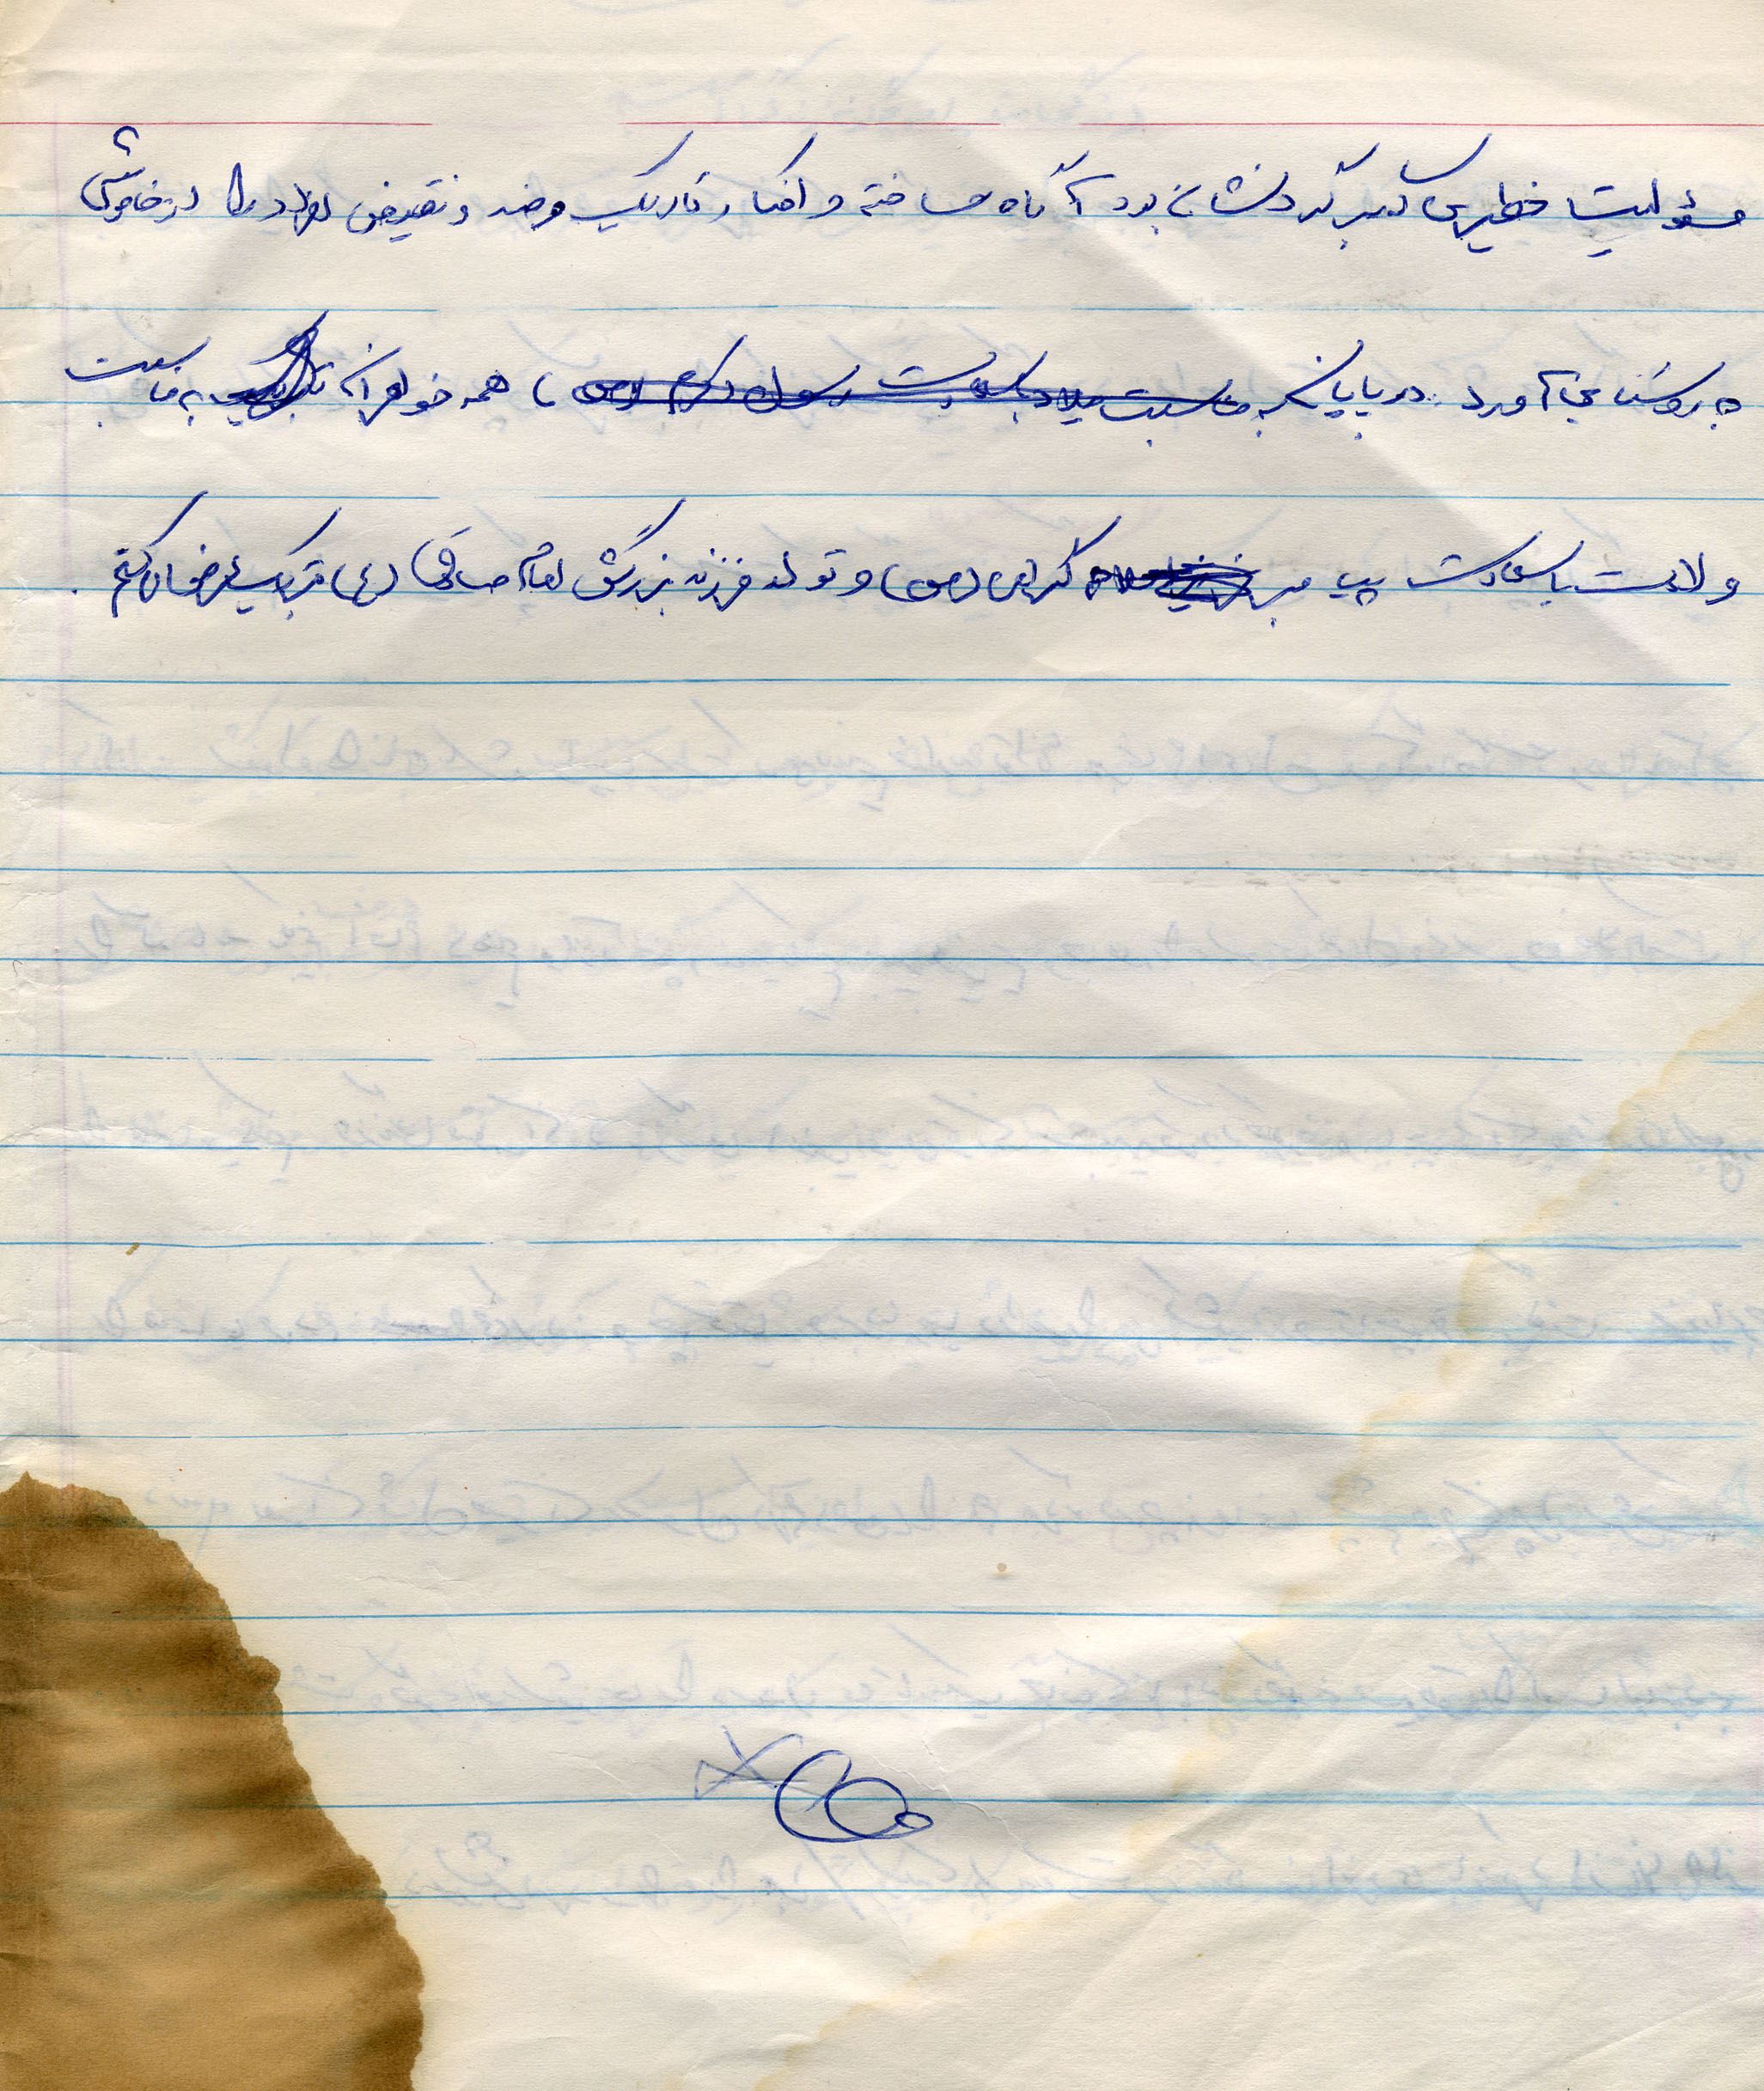 مسئولیت خطیری که بر گردنشان بود آگاه ساخته و افکار تاریک و ضد و نقیض افراد را از خاموشی
به روشنایی آورد. در پایان به مناسبت میلاد باسعادت رسول اکرم (ص) همه خواهران به مناسبت
ولادت باسعادت پیامبر گرامی (ص) و تولد فرزند بزرگش امام صادق (ع) تبریک عرض می‌کنم.